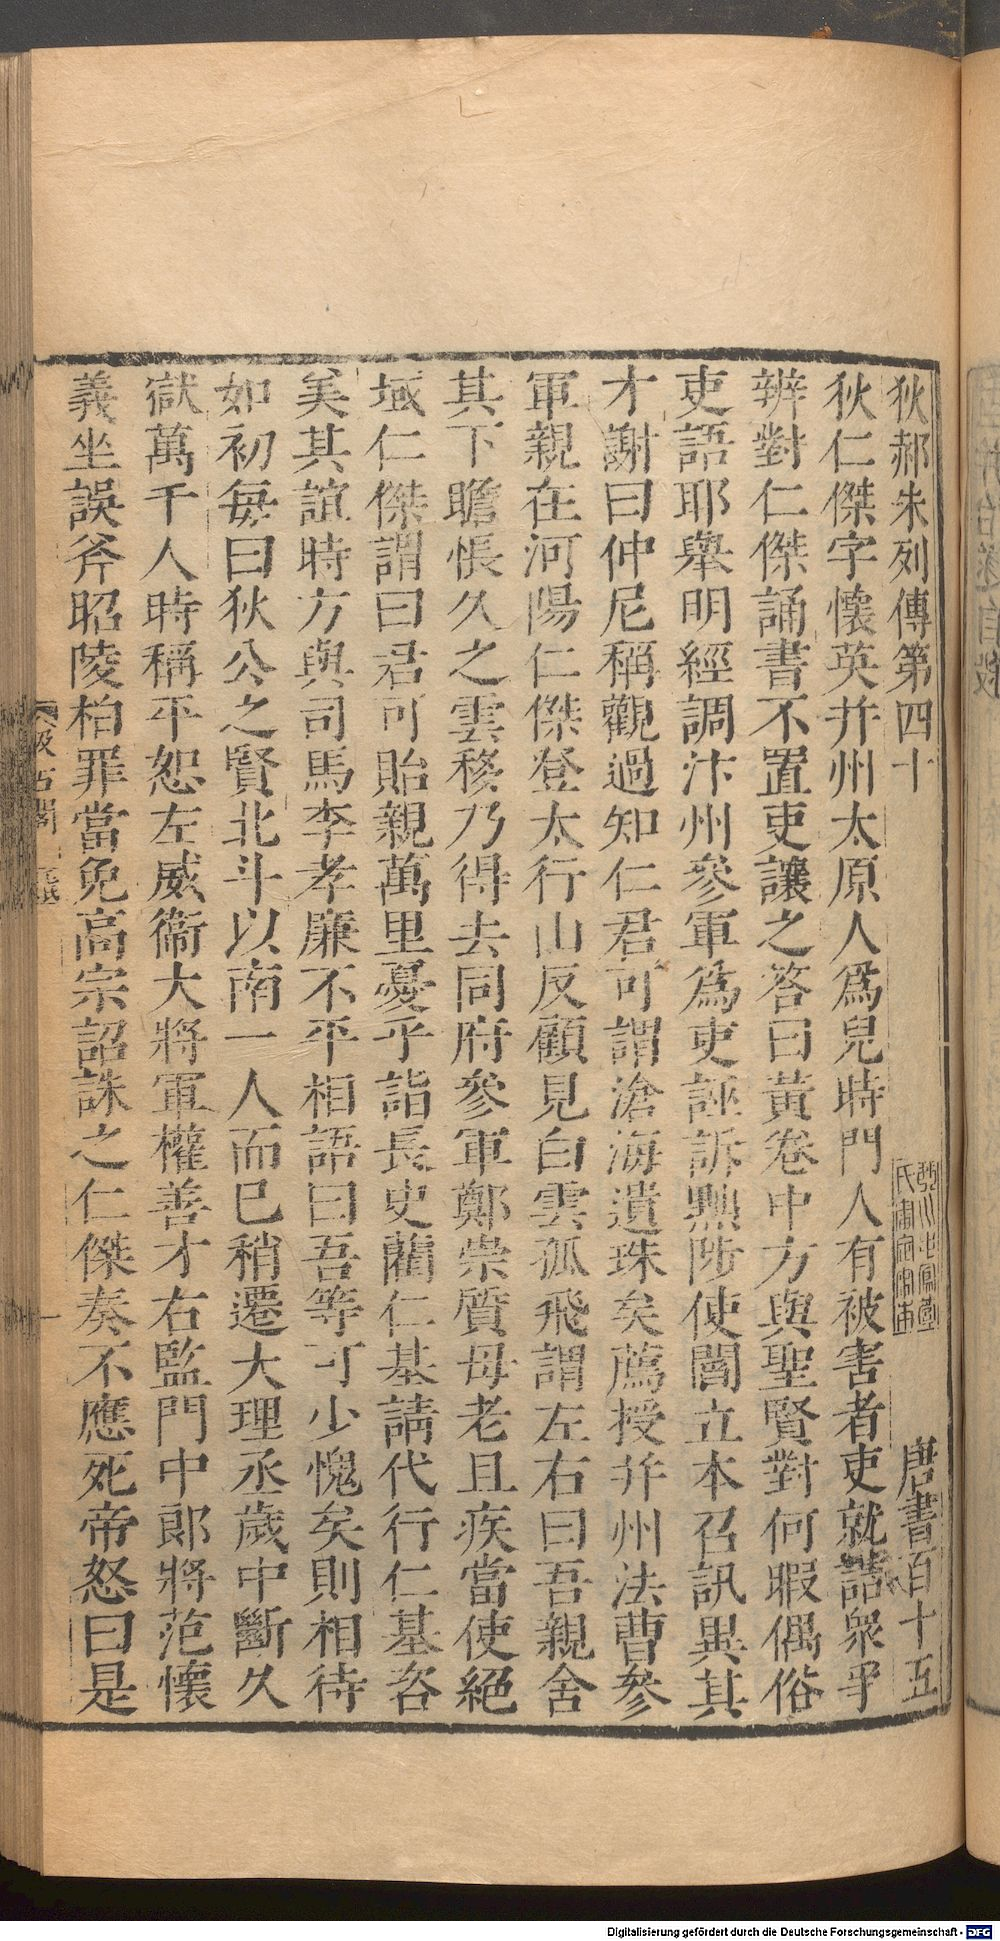 狄郝朱列傳第四十　唐書百十五
狄仁傑字懷英幷州太原人爲兒時門人有被害者吏就詰衆爭
辨對仁傑誦書不置吏讓之答曰黃卷中方與聖賢對何暇偶俗
吏語耶舉明經調汴州參軍爲吏誣訴黜陟使閻立本召訊異其
才謝曰仲尼稱觀過知仁君可謂滄海遺珠矣薦授幷州法曹參
軍親在河陽仁傑登太行山反顧見白雲孤飛謂左右曰吾親舍
其下瞻悵久之雲移乃得去同府參軍鄭崇質母老且疾當使絕
域仁傑謂曰君可貽親萬里憂乎詣長史藺仁基請代行仁基咨
美其誼時方與司馬李孝廉不平相語曰吾等可少愧矣則相待
如初每曰狄公之賢北斗以南一人而已稍遷大理丞歲中斷久
獄萬千人時稱平恕左威衞大將軍權善才右監門中郞將范懷
義坐誤斧昭陵柏罪當免高宗詔誅之仁傑奏不應死帝怒曰是
汲古閣
Digitalisierung gefördert durch die Deutsche Forschungsgemeinschaft - DFG